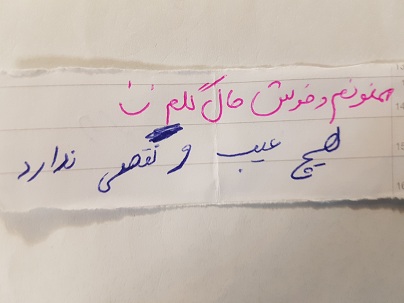 ممنونم و خوش حال گلم
هیچ عیب و نقصی ندارد